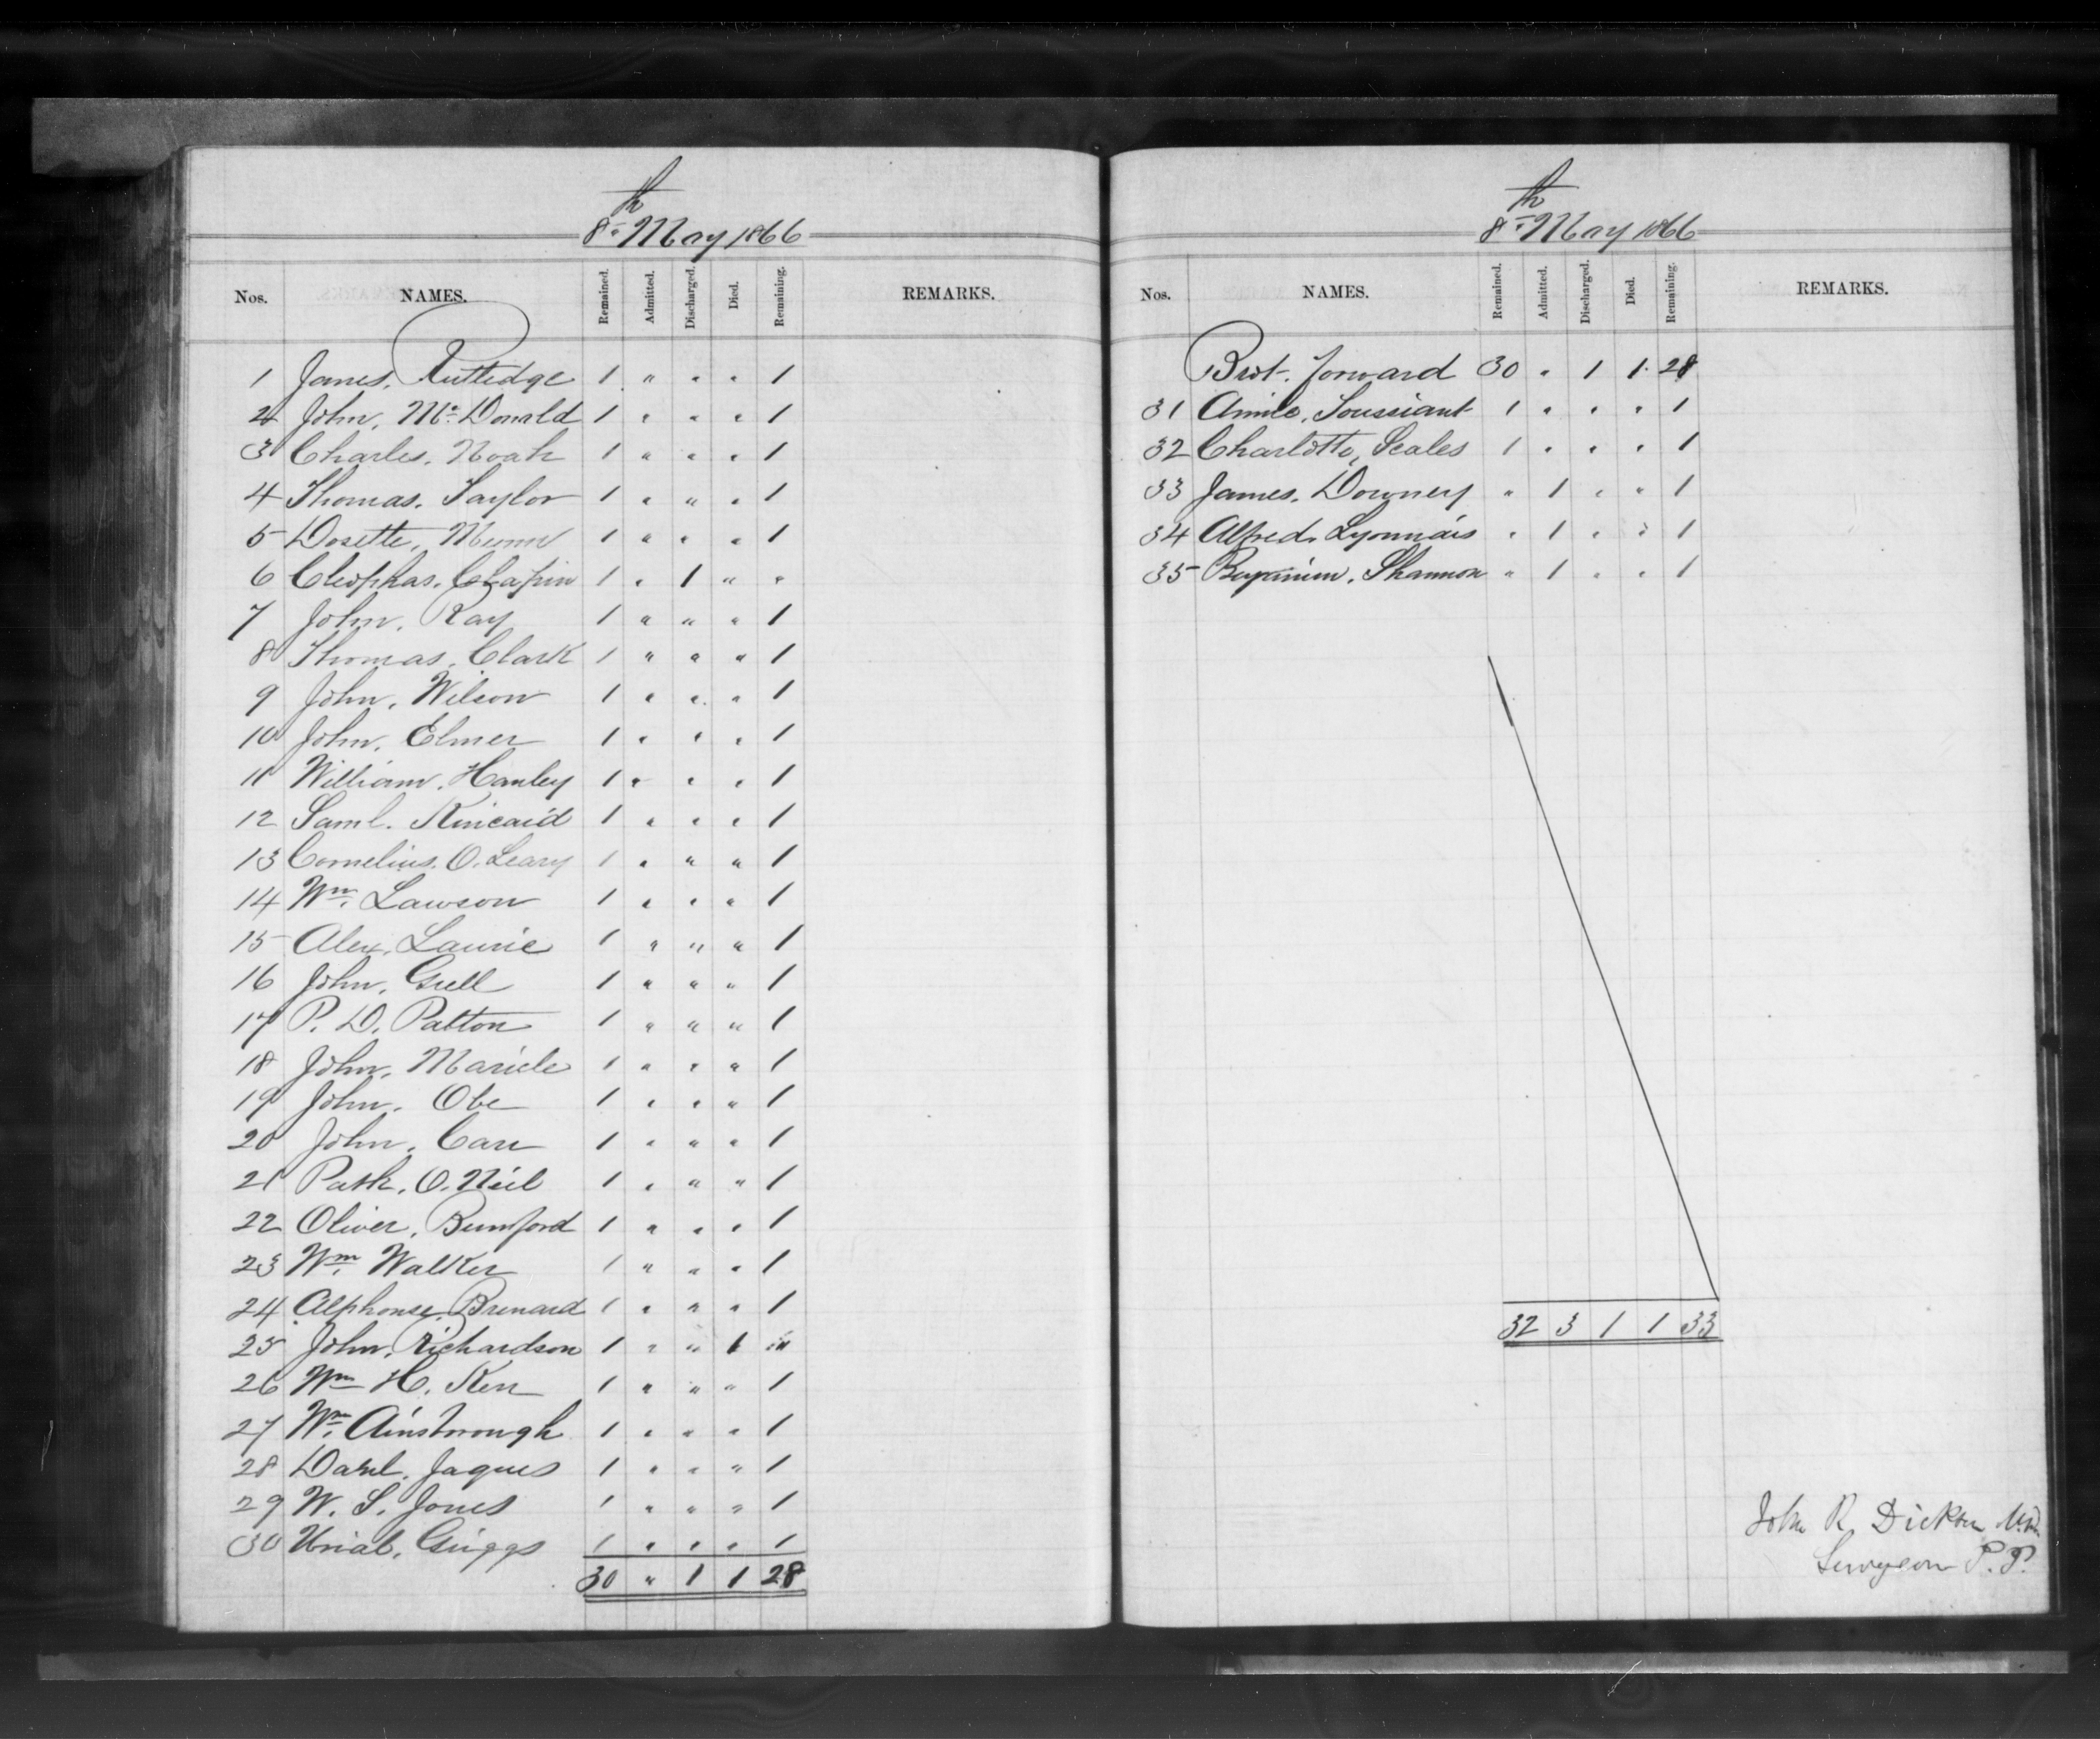 8th May 1866
Nos. NAMES. Remained. Admitted. Discharged. Died. Remaining. REMARKS.
1 James, Rutledge 1 " " " 1
2 John, Mc Donald 1 " " " 1
3 Charles, Noah 1 " " " 1
4 Thomas, Taylor 1 " " " 1
5 Dosette, Munn 1 " " " 1
6 Cleophas, Chapin 1 " 1 " "
7 John, Ray 1 " " " 1
8 Thomas, Clark 1 " " " 1
9 John, Wilson 1 " " " 1
10 John, Elmer 1 " " " 1
11 William, Hanley 1 " " " 1
12 Saml. Kincaid 1 " " " 1
13 Cornelius, O. Leary 1 " " " 1
14 Wm. Lawson 1 " " " 1
15 Alex, Laurie 1 " " " 1
16 John, Grell 1 " " " 1
17 P. D. Patton 1 " " " 1
18 John, Mariele 1 " " " 1
19 John, Obe 1 " " " 1
20 John, Carr 1 " " " 1
21 Patk, O. Neil 1 " " " 1
22 Oliver, Bumford 1 " " " 1
23 Wm. Walker 1 " " " 1
24 Alphonse, Brenard 1 " " " 1
25 John, Richardson 1 " " 1 "
26 Wm H. Kerr 1 " " " 1
27 Wm. Ainstrough 1 " " " 1
28 Danl. Jaques 1 " " " 1
29 W. S. Jones 1 " " " 1
30 Uriah, Griggs 1 " " " 1
30 " 1 1 28
8th May 1866
Nos. NAMES. Remained. Admitted. Discharged. Died. Remaining. REMARKS.
Brot. forward 30 " 1 1 28
31 Aimie, Toussiant 1 " " " 1
32 Charlotte, Scales 1 " " " 1
33 James, Downey " 1 " " 1
34 Alfred, Lyonnais " 1 " " 1
35 Benjamin, Shannon " 1 " " 1
32 3 1 1 33
John R Dickson, M.D.
Surgeon P. P.